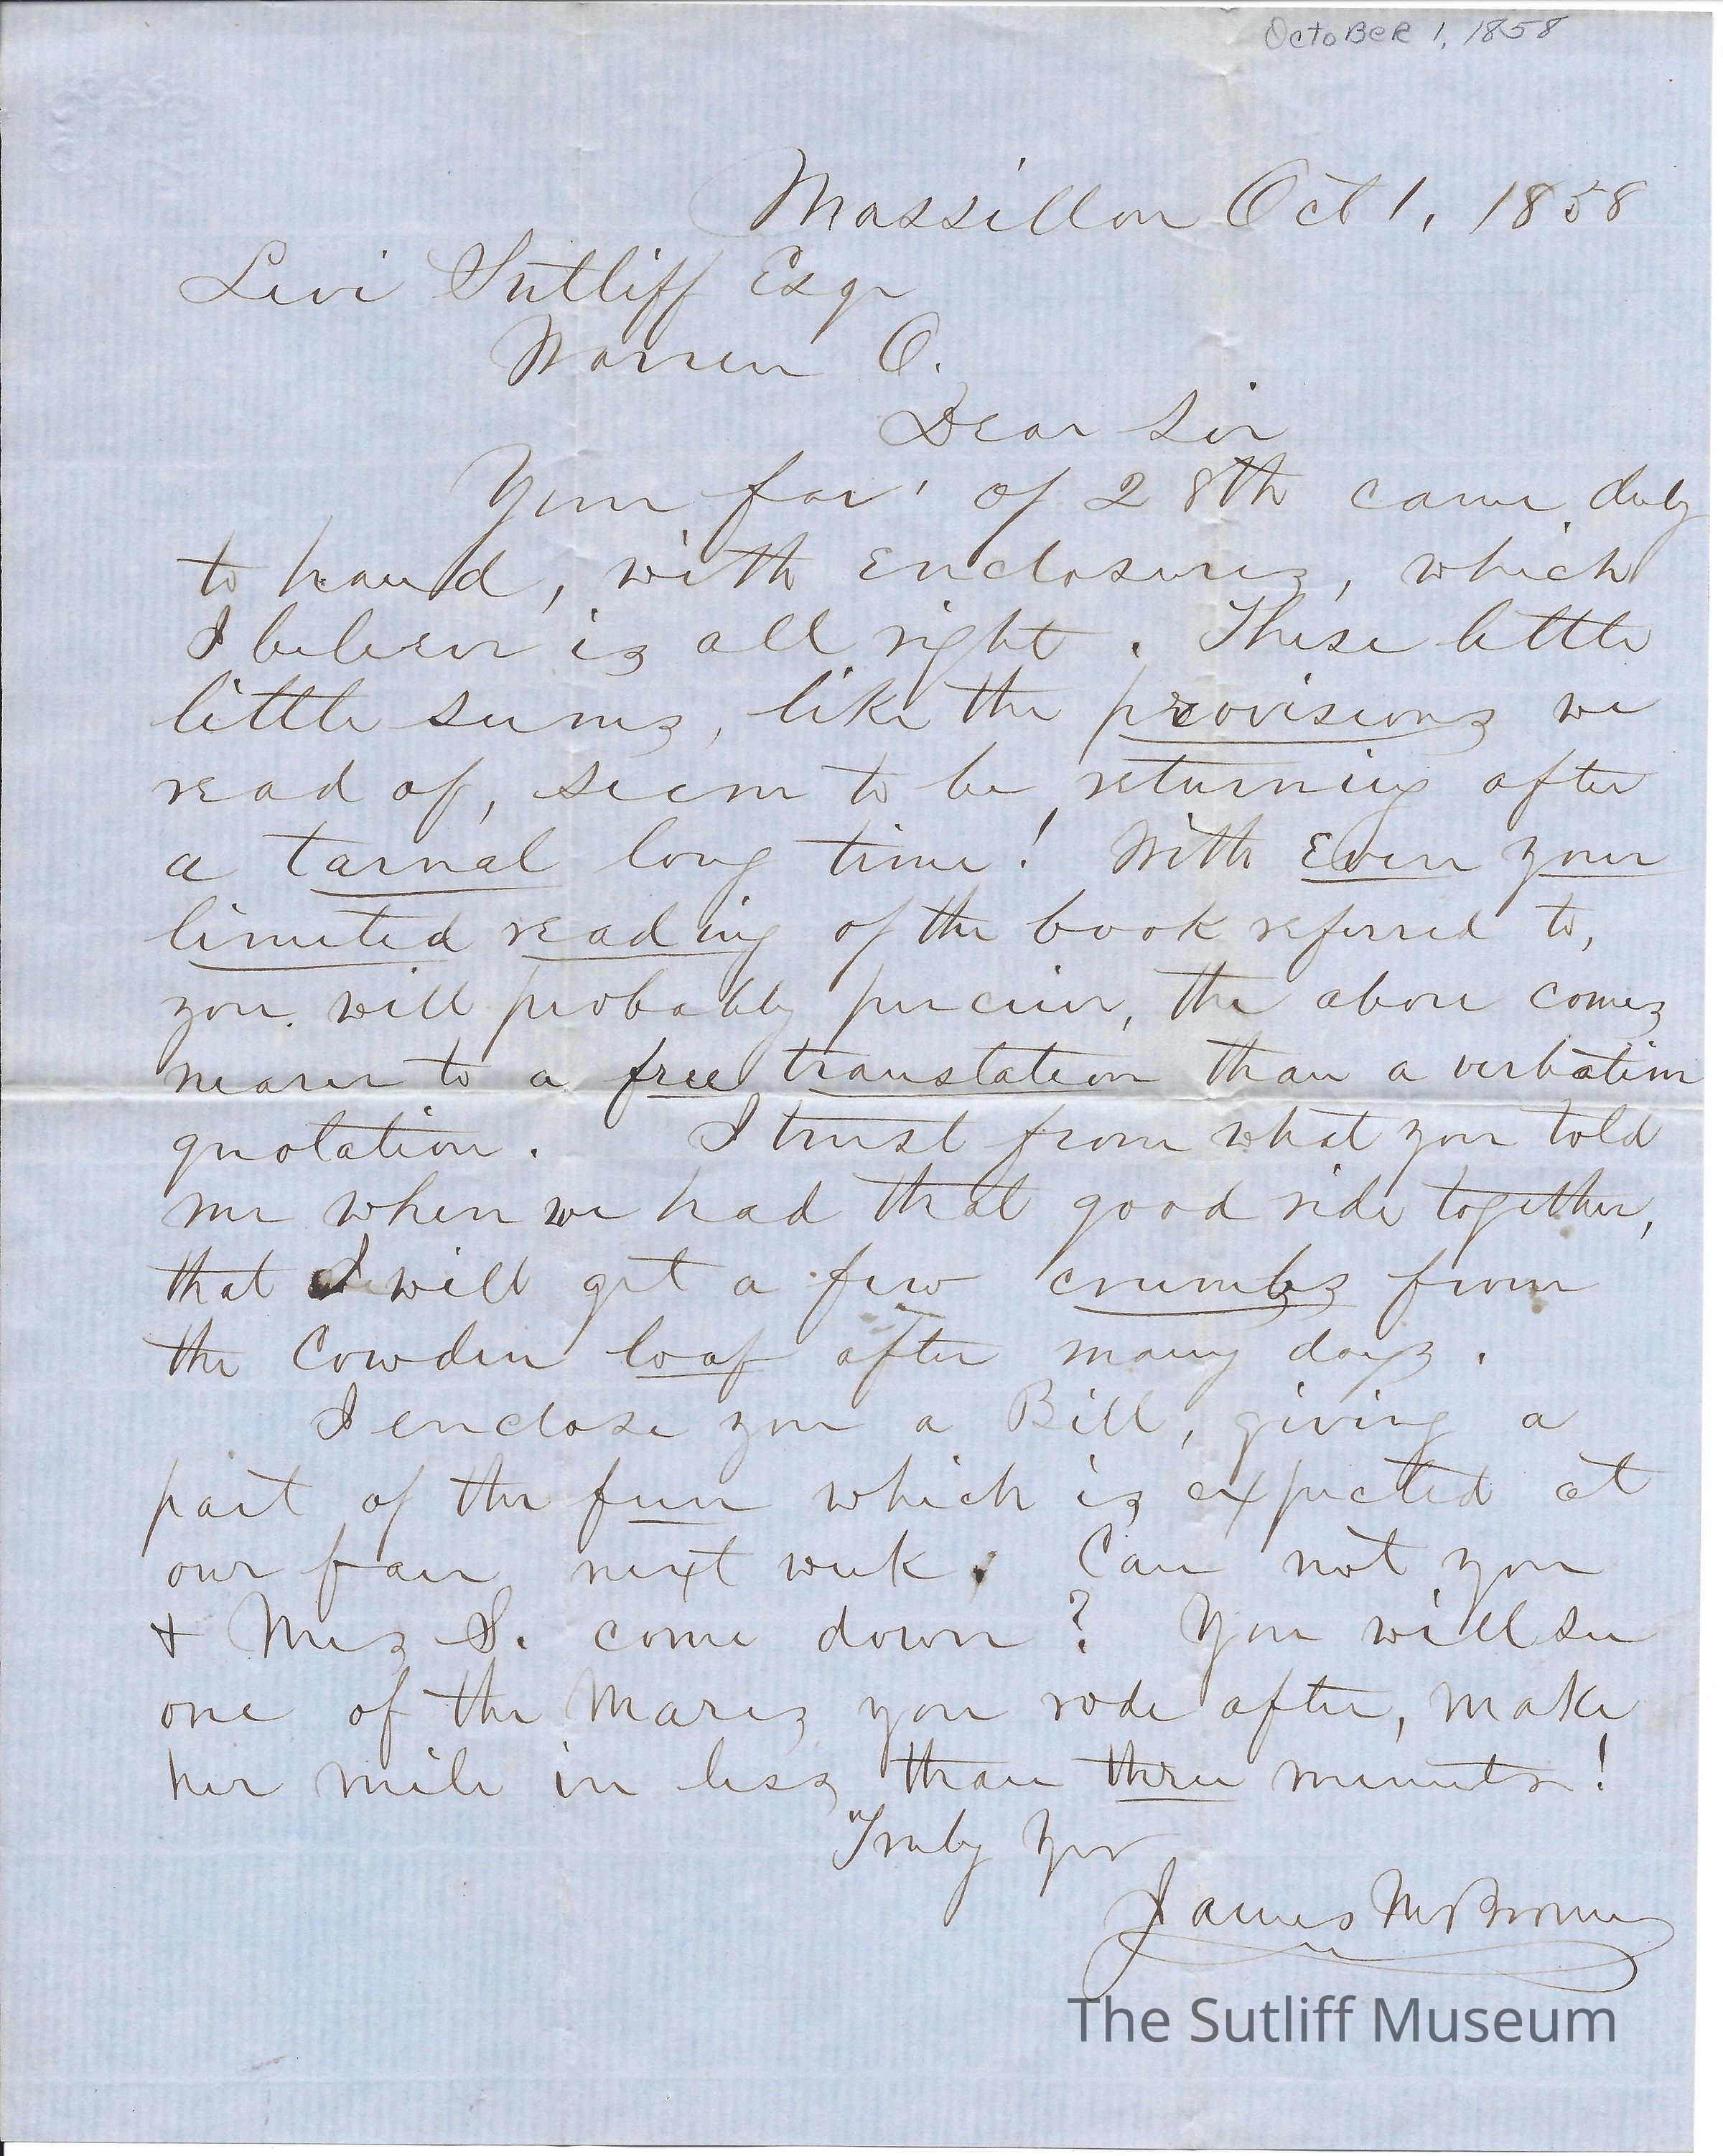 October 1, 1858
Massillon Oct 1, 1858
Levi Sutliff Esqr
Warren O.
Dear Sir
Your fav' of 28th came duly
to hand, with enclosures, which
I believe is all right. These little
little sums, like the provisions we
read of, seem to be returning after
a tarnal long time! With even your
limited reading of the book referred to,
you will probably perceive, the above comes
nearer to a free translation than a verbatim
quotation. I trust from what you told
me when we had that good ride together,
that I will get a few crumbs from
the Cowden loaf after many days.
I enclose you a Bill, giving a
part of the fun which is expected at
our fair next week. Can not you
& Mrs S. come down? You will see
one of the Mares you rode after, make
her mile in less than three minutes!
Truly Yrs
James M Brown
The Sutliff Museum